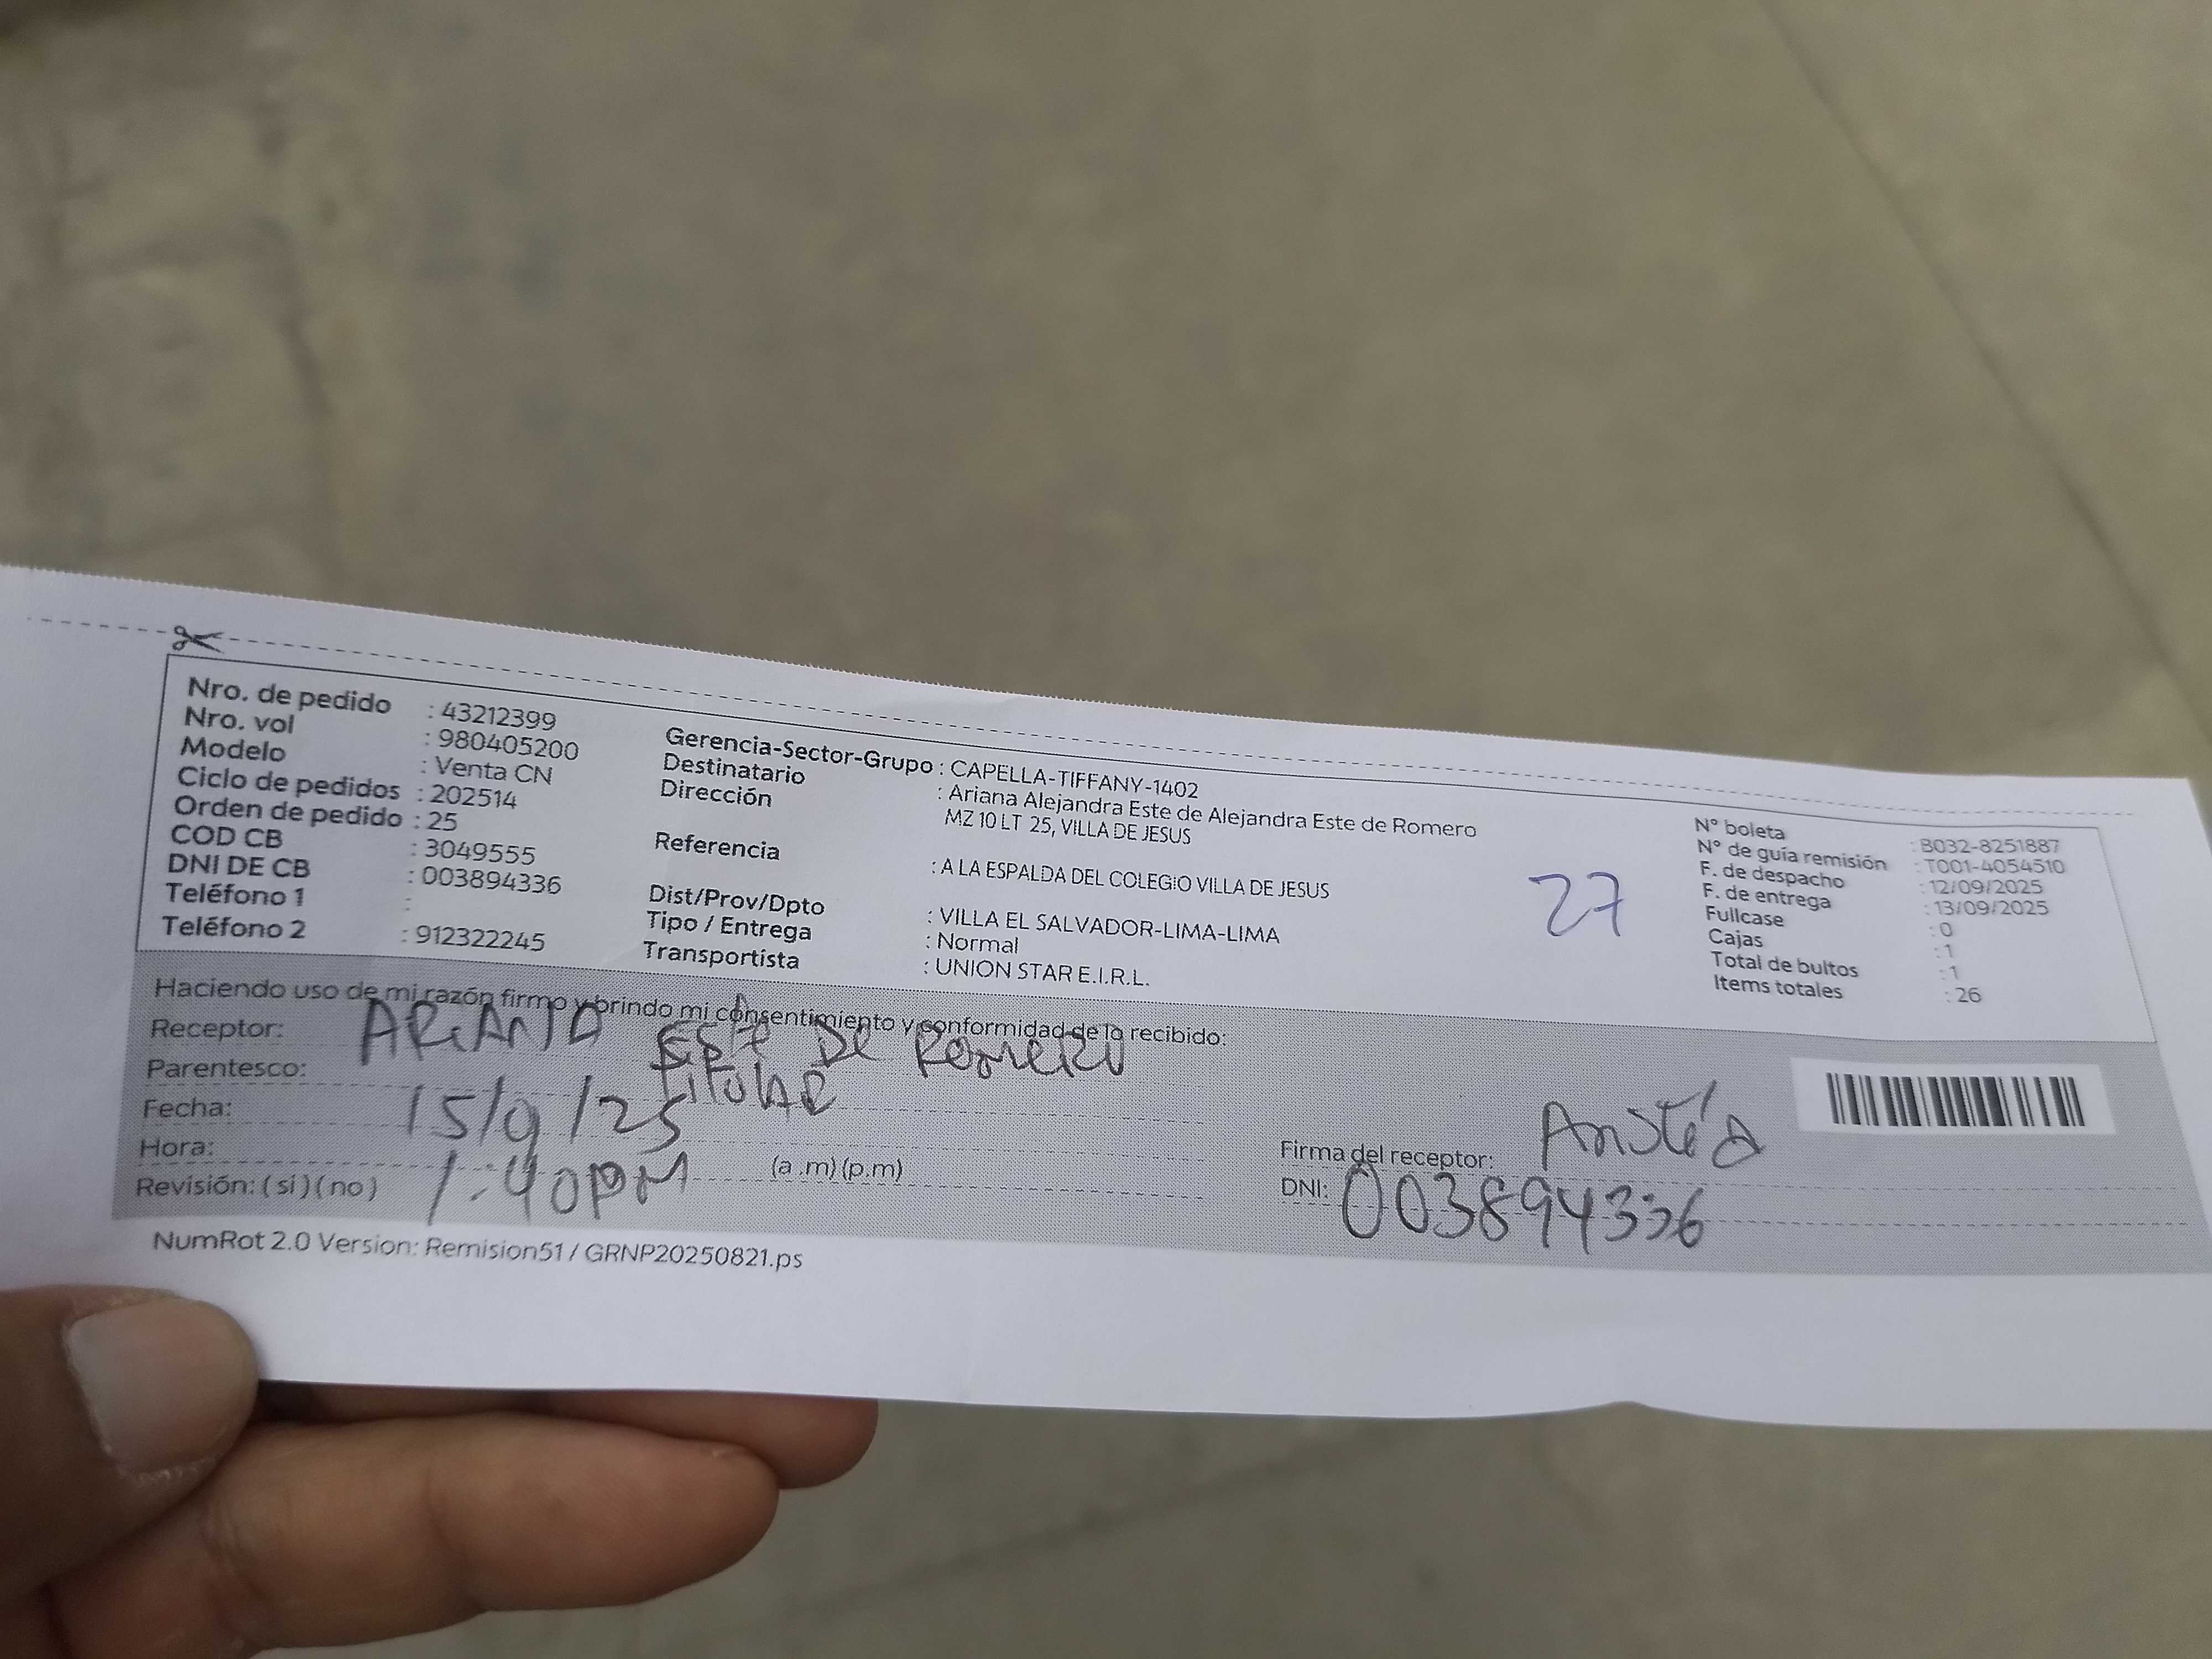 Nro. de pedido : 43212399
Nro. vol : 980405200
Modelo : Venta CN
Ciclo de pedidos : 202514
Orden de pedido : 25
COD CB : 3049555
DNI DE CB : 003894336
Teléfono 1 :
Teléfono 2 : 912322245
Gerencia-Sector-Grupo : CAPELLA-TIFFANY-1402
Destinatario : Ariana Alejandra Este de Alejandra Este de Romero
Dirección MZ 10 LT 25, VILLA DE JESUS
Referencia : A LA ESPALDA DEL COLEGIO VILLA DE JESUS
Dist/Prov/Dpto : VILLA EL SALVADOR-LIMA-LIMA
Tipo / Entrega : Normal
Transportista : UNION STAR E.I.R.L.
27
N° boleta : B032-8251887
N° de guía remisión : T001-4054510
F. de despacho : 12/09/2025
F. de entrega : 13/09/2025
Fullcase : 0
Cajas : 1
Total de bultos : 1
Items totales : 26
Haciendo uso de mi razón firmo y brindo mi consentimiento y conformidad de lo recibido:
Receptor: ARIANA DE ROMERO
Parentesco: TITULAR
Fecha: 15/9/25
Hora: 1:40PM (a.m) (p.m)
Revisión: ( si ) ( no )
Firma del receptor:
DNI: 003894336
NumRot 2.0 Version: Remision51 / GRNP20250821.ps